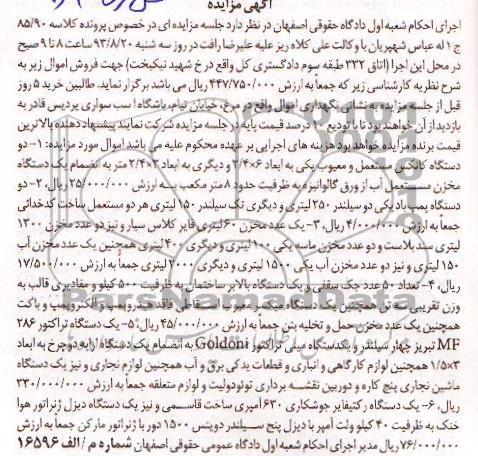 آگهی مزایده
اجرای احکام شعبه اول دادگاه حقوقی اصفهان در نظر دارد جلسه مزایده ای در خصوص پرونده کلاسه ۸۵/۹۰
ج ۱ له عباس شهپریان با وکالت علی کلاه ریز علیه علیرضا رافت در روز سه شنبه ۹۳/۸/۲۰ ساعت ۸ تا ۹ صبح
در محل این اجرا (اتاق ۳۳۲ طبقه سوم دادگستری کل واقع در خ شهید نیکبخت) جهت فروش اموال زیر به
شرح نظریه کارشناسی زیر که جمعاً به ارزش ۴۴۷/۷۵۰/۰۰۰ ریال می باشد برگزار نماید. طالبین خرید ۵ روز
قبل از جلسه مزایده به نشانی نگهداری اموال واقع در مرغ، خیابان نیام، باشگاه اسب سواری پردیس قادر به
بازدید از آن خواهند بود تا با تودیع ۱۰ درصد قیمت پایه در جلسه مزایده شرکت نمایند پیشنهاد دهنده بالاترین
قیمت برنده مزایده خواهد بود هزینه های اجرایی بر عهده محکوم علیه می باشد اموال مورد مزایده: ۱- دو
دستگاه کانکس مستعمل و معیوب یکی به ابعاد ۶×۲/۴ و دیگری به ابعاد ۳×۲/۴ متر به انضمام یک دستگاه
مخزن مستعمل آب از ورق گالوانیزه به ظرفیت حدود ۸ متر مکعب به ارزش ۲۵/۰۰۰/۰۰۰ ریال، ۲- دو
دستگاه پمپ باد یکی دو سیلندر ۲۵۰ لیتری و دیگری تک سیلندر ۱۵۰ لیتری هر دو مستعمل ساخت کدخدائی
جمعاً به ارزش ۴/۰۰۰/۰۰۰ ریال، ۳- یک عدد مخزن ۶۰ لیتری فایر کلاس سیار و نیز دو عدد مخزن ۱۳۰۰
لیتری سند بلاست و دو عدد مخزن ماسه یکی ۱۰۰ لیتری و دیگری ۴۰۰ لیتری همچنین یک عدد مخزن آب
۱۵۰ لیتری و نیز دو عدد مخزن آب یکی ۱۵۰۰ لیتری و دیگری ۲۰۰۰ لیتری جمعاً به ارزش ۱۷/۵۰۰/۰۰۰
ریال، ۴- تعداد ۵۰ عدد جک سقفی و یک دستگاه بالابر ساختمانی به ظرفیت ۵۰۰ کیلو و مقادیری قالب به
وزن تقریبی تن همچنین یک دستگاه میکسر معیوب اسقاطی فاقد هیدروپمپ و الکتروپمپ و باکت
همچنین یک عدد مخزن حمل و تخلیه بتن جمعاً به ارزش ۴۵/۰۰۰/۰۰۰ ریال، ۵- یک دستگاه تراکتور ۲۸۶
MF تبریز چهار سیلندر و یکدستگاه مینی تراکتور Goldoni به انضمام یک دستگاه ارابه دو چرخ به ابعاد
۳×۱/۵ همچنین لوازم کارگاهی و انباری و قطعات یدکی برق و آب همچنین لوازم نجاری و نیز یک دستگاه
ماشین نجاری پنج کاره و دوربین نقشه برداری تئودولیت و لوازم متعلقه جمعاً به ارزش ۳۳۰/۰۰۰/۰۰۰
ریال، ۶- یک دستگاه رکتیفایر جوشکاری ۶۳۰ آمپری ساخت قاسمی و نیز یک دستگاه دیزل ژنراتور هوا
خنک به ظرفیت ۴۰ کیلو ولت آمپر با دیزل پنج سیلندر دویتس ۱۵۰۰ دور با ژنراتور مارکن جمعاً به ارزش
۷۶/۰۰۰/۰۰۰ ریال مدیر اجرای احکام شعبه اول دادگاه عمومی حقوقی اصفهان شماره م / الف ۱۶۵۹۶
ParsNamadData